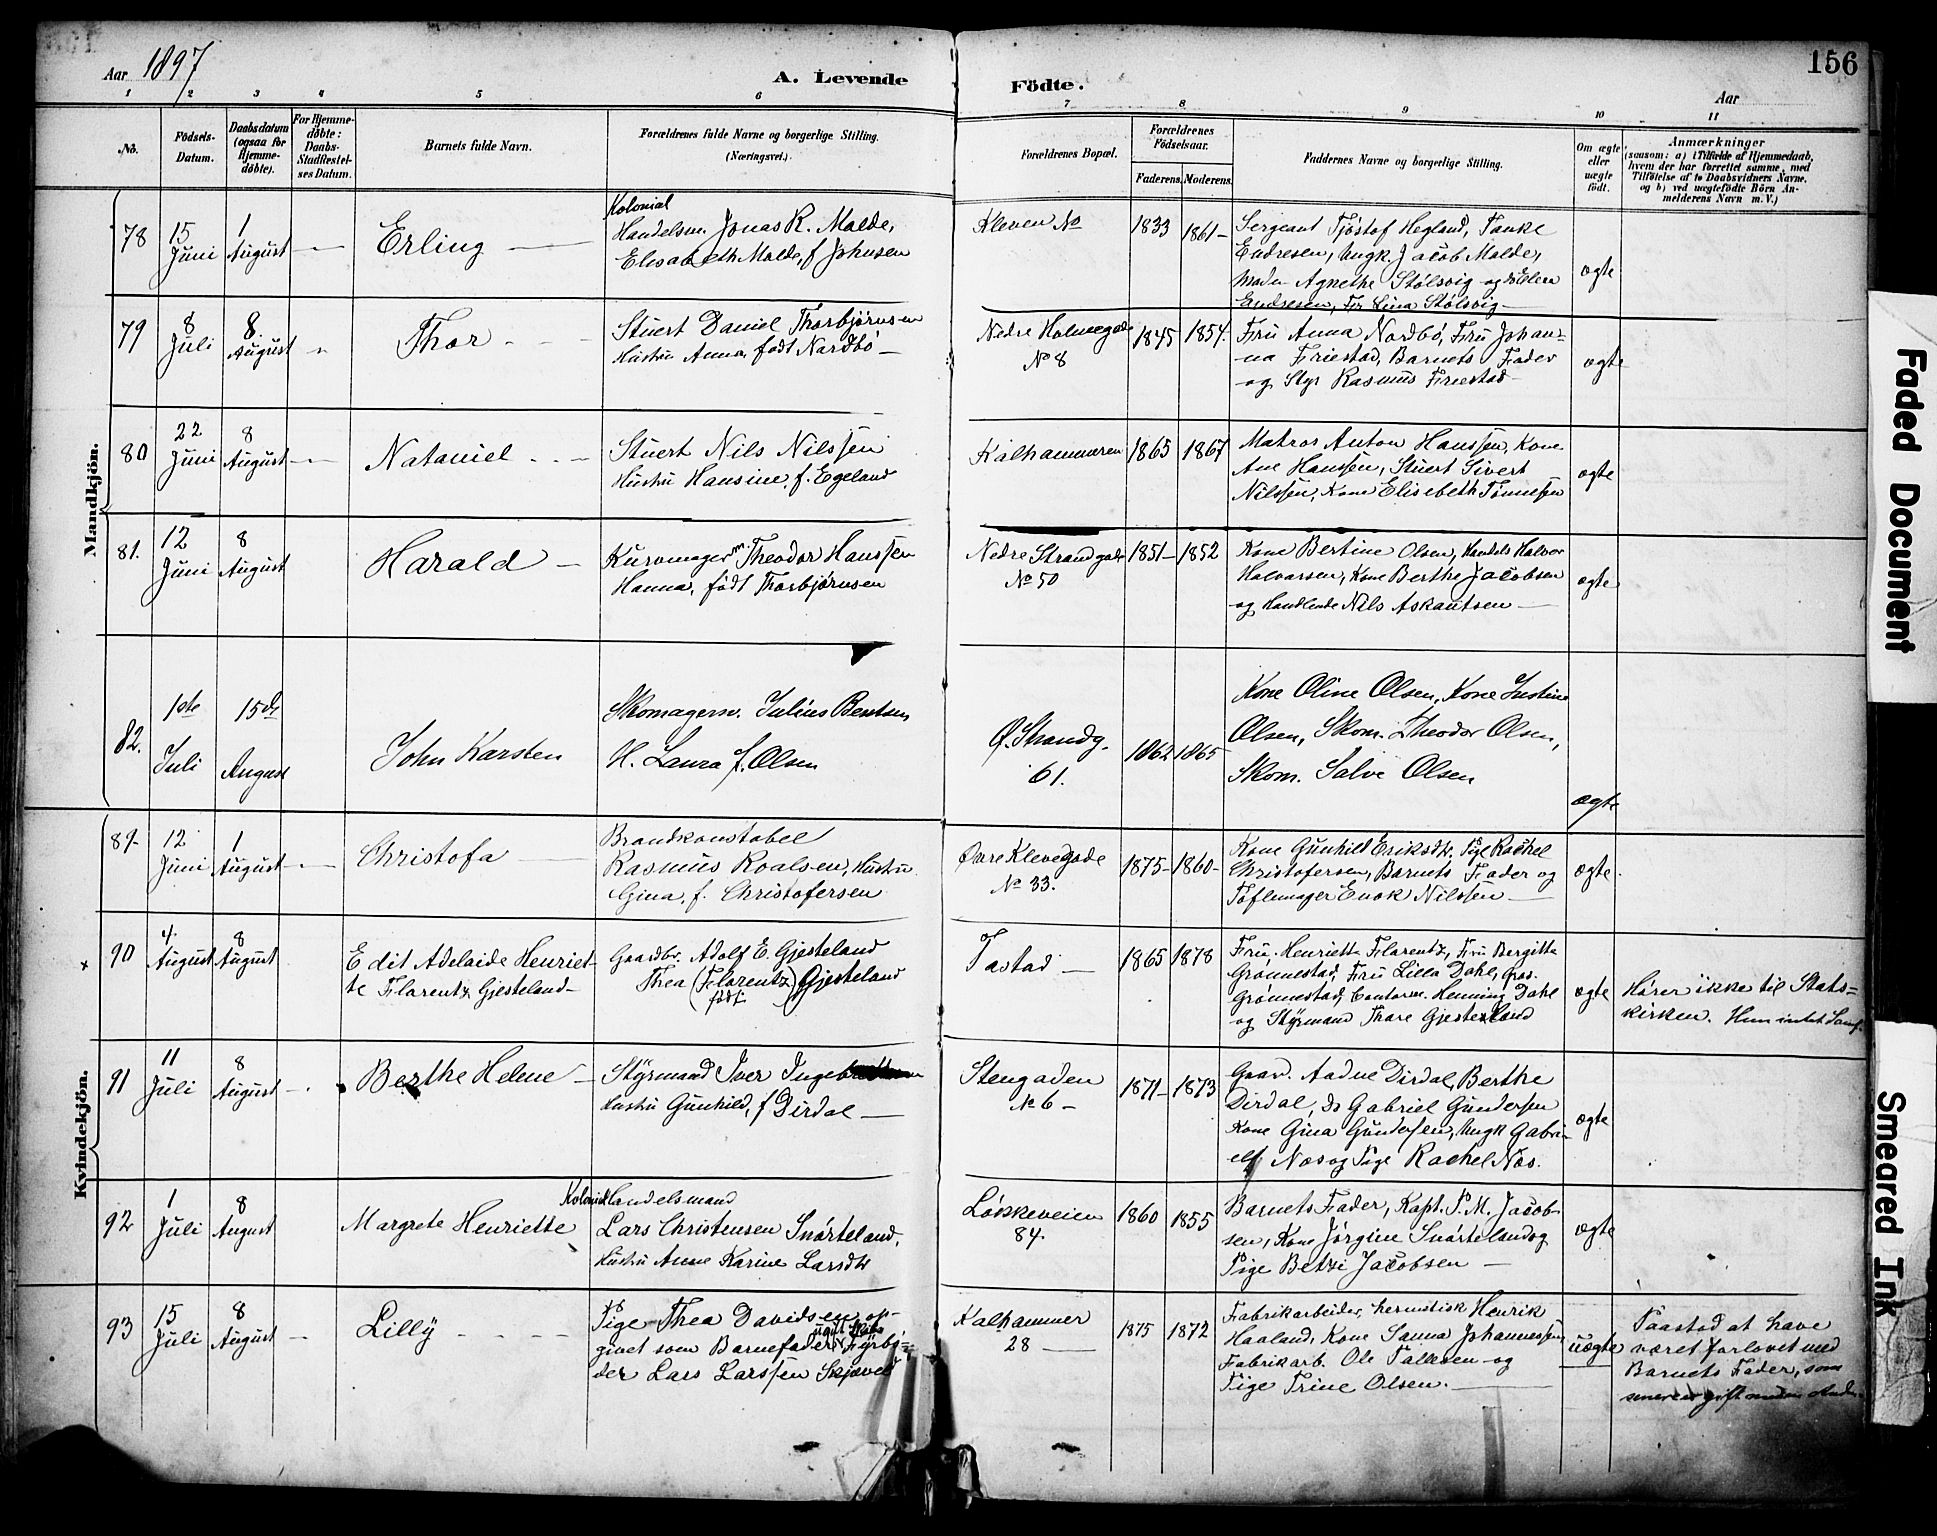 Aar 1897
A. Levende
Födte.
Aar
156
1 2 3 4 5 6 7 8 9 10 11
No.
Födsels-
Datum.
Daabsdatum
(ogsaa for
Hjemme-
døbte).
For Hjemme-
døbte:
Daabs-
Stadfæstel-
ses Datum.
Barnets fulde Navn.
Forældrenes fulde Navne og borgerlige Stilling.
(Næringsvei.)
Forældrenes Bopæl.
Forældrenes
Födselsaar.
Faderens.
Moderens.
Faddernes Navne og borgerlige Stilling.
Om ægte
eller
uægte
født.
Anmærkninger
(saasom: a) i Tilfælde af Hjemmedaab,
hvem der har forrettet samme, med
Tilføielse af to Daabsvidners Navne,
og b) ved uægtefödte Börn An-
melderens Navn m. V.)
Mandkjön.
78
15
Juni
1
August
Erling
Kolonial
Handelsm. Jonas R. Malde,
Elisabeth Malde, f Johnsen
Kleven No
1833
1861
Sergeant Tjöstof Hegland, Tanke
Endresen, Ungk. Jacob Malde,
Madm Agnethe Stølsvig og Elen
Endresen, Fr. Lina Stølsvig
ægte
79
8
Juli
8.
August
Thor
Stuert Daniel Thorbjørnsen
Hustru Anna, født Nordbö
Nedre Holmegade
No 8
1845
1854.
Fru Anna Nordbö, Fru Johan-
na Friestad, Barnets Fader
og Styr Rasmus Friestad
ægte
80
22
Juni
8
August
Nataniel
Stuert Nils Nilssen
Hustru Hansine, f. Egeland
Kalhammeren
1865
1867
Matros Anton Hanssen, Kone
Ane Hanssen, Stuert Sivert
Nilssen, Kone Elisebeth Tönnesen
ægte
81.
12
Juni
8
August
Harald
Kurvmager Theodor Hanssen
Hanna, født Thorbjørnsen
Nedre Strandgade
No 50
1851
1852
Kone Bertine Olsen, Handels Halvor
Halvorsen, Kone Berthe Jacobsen
og Handlende Nils Askautsen
ægte
82.
1ste
Juli
15de
August
John Karsten
Skomagersv. Julius Bentsen
H. Laura f. Olsen
Ø. Strandg.
61.
1862
1865
Kone Oline Olsen, Kone Justine
Olsen, Skom. Theodor Olsen,
Skom. Salve Olsen
ægte
Kvindekjön.
89
12
Juni
1
August
Christofa
Brandkonstabel
Rasmus Roalsen, Hustru
Gina, f. Christofersen
Øvre Klevegade
No 33.
1875
1860
Kone Gunhild Eriksdtr, Pige Rachel
Christofersen, Barnets Fader og
Töflemager Enok Nilssen
ægte
90
4.
August
8
August
Edit Adelaide Henriet-
te Florentz Gjesteland
Gaardbr. Adolf E. Gjesteland
Thea (Florentz) Gjesteland
født
Tastad
1865
1878
Fru Henriette Florentz, Fru Bergitte
Grønnestad, Fru Lilla Dahl,
Grønnestad, Henning Dahl
og Styrmand Thore Gjesteland
ægte
Hører ikke til Stats-
kirken.
91
11
Juli
8
August
Berthe Helene
Styrmand Iver
Hustru Gunhild, f Dirdal
Stengaden
No 6
1871
1873
Gaard. Aadne Dirdal, Berthe
Dirdal, do Gabriel Gundersen
Kone Gina Gundersen, Ungk Gabri-
el Næs og Pige Rachel Næs.
ægte
92
1
Juli
8
August
Margrete Henriette
Kolonialhandelsmand
Lars Christensen Snørteland,
Hustru Anne Karine Larsdtr
Løkkeveien
84.
1860
1855
Barnets Fader, Kapt. P. M. Jacob-
sen, Kone Jørgine Snørteland og
Pige Betzi Jacobsen
ægte
93
15
Juli
8
August
Lilly
Pige Thea Davidsen op-
givet som Barnefader Fyrbø-
der Lars Larssen Skjæveland
Kalhammer
28
1875
1872
Fabrikarbeider, hermetisk Henrik
Haaland, Kone Sanna Johannessen
Fabrikarb. Ole Tallesen og
Pige Trine Olsen.
uægte
Paastod at have
været forlovet med
Barnets Fader, som
senere er gift med en
Faded Document
Smeared Ink